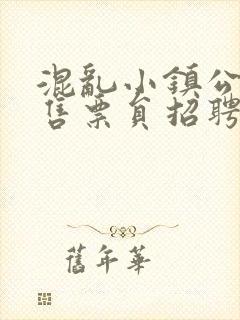 混亂小鎮公
售票員招聘
舊年華